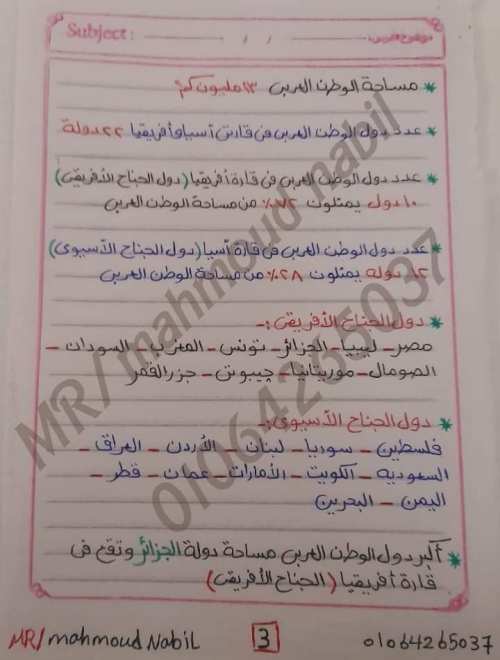 Subject :
/ /
موضوع الدرس:
* مساحة الوطن العربى ١٣ مليون كم٢
* عدد دول الوطن العربى فى قارتى أسيا وأفريقيا ٢٢ دولة
* عدد دول الوطن العربى فى قارة أفريقيا (دول الجناح الأفريقى)
١٠ دول يمثلون ٧٢٪ من مساحة الوطن العربى
* عدد دول الوطن العربى فى قارة أسيا (دول الجناح الأسيوى)
١٢ دولة يمثلون ٢٨٪ من مساحة الوطن العربى
* دول الجناح الأفريقى :-
مصر - ليبيا - الجزائر - تونس - المغرب - السودان -
الصومال - موريتانيا - جيبوتى - جزر القمر
* دول الجناح الأسيوى :-
فلسطين - سوريا - لبنان - الأردن - العراق -
السعودية - الكويت - الأمارات - عمان - قطر -
اليمن - البحرين
* أكبر دول الوطن العربى مساحة دولة الجزائر وتقع فى
قارة أفريقيا (الجناح الأفريقى)
MR/ mahmoud nabil
01064265037
MR/ mahmoud Nabil
3
01064265037